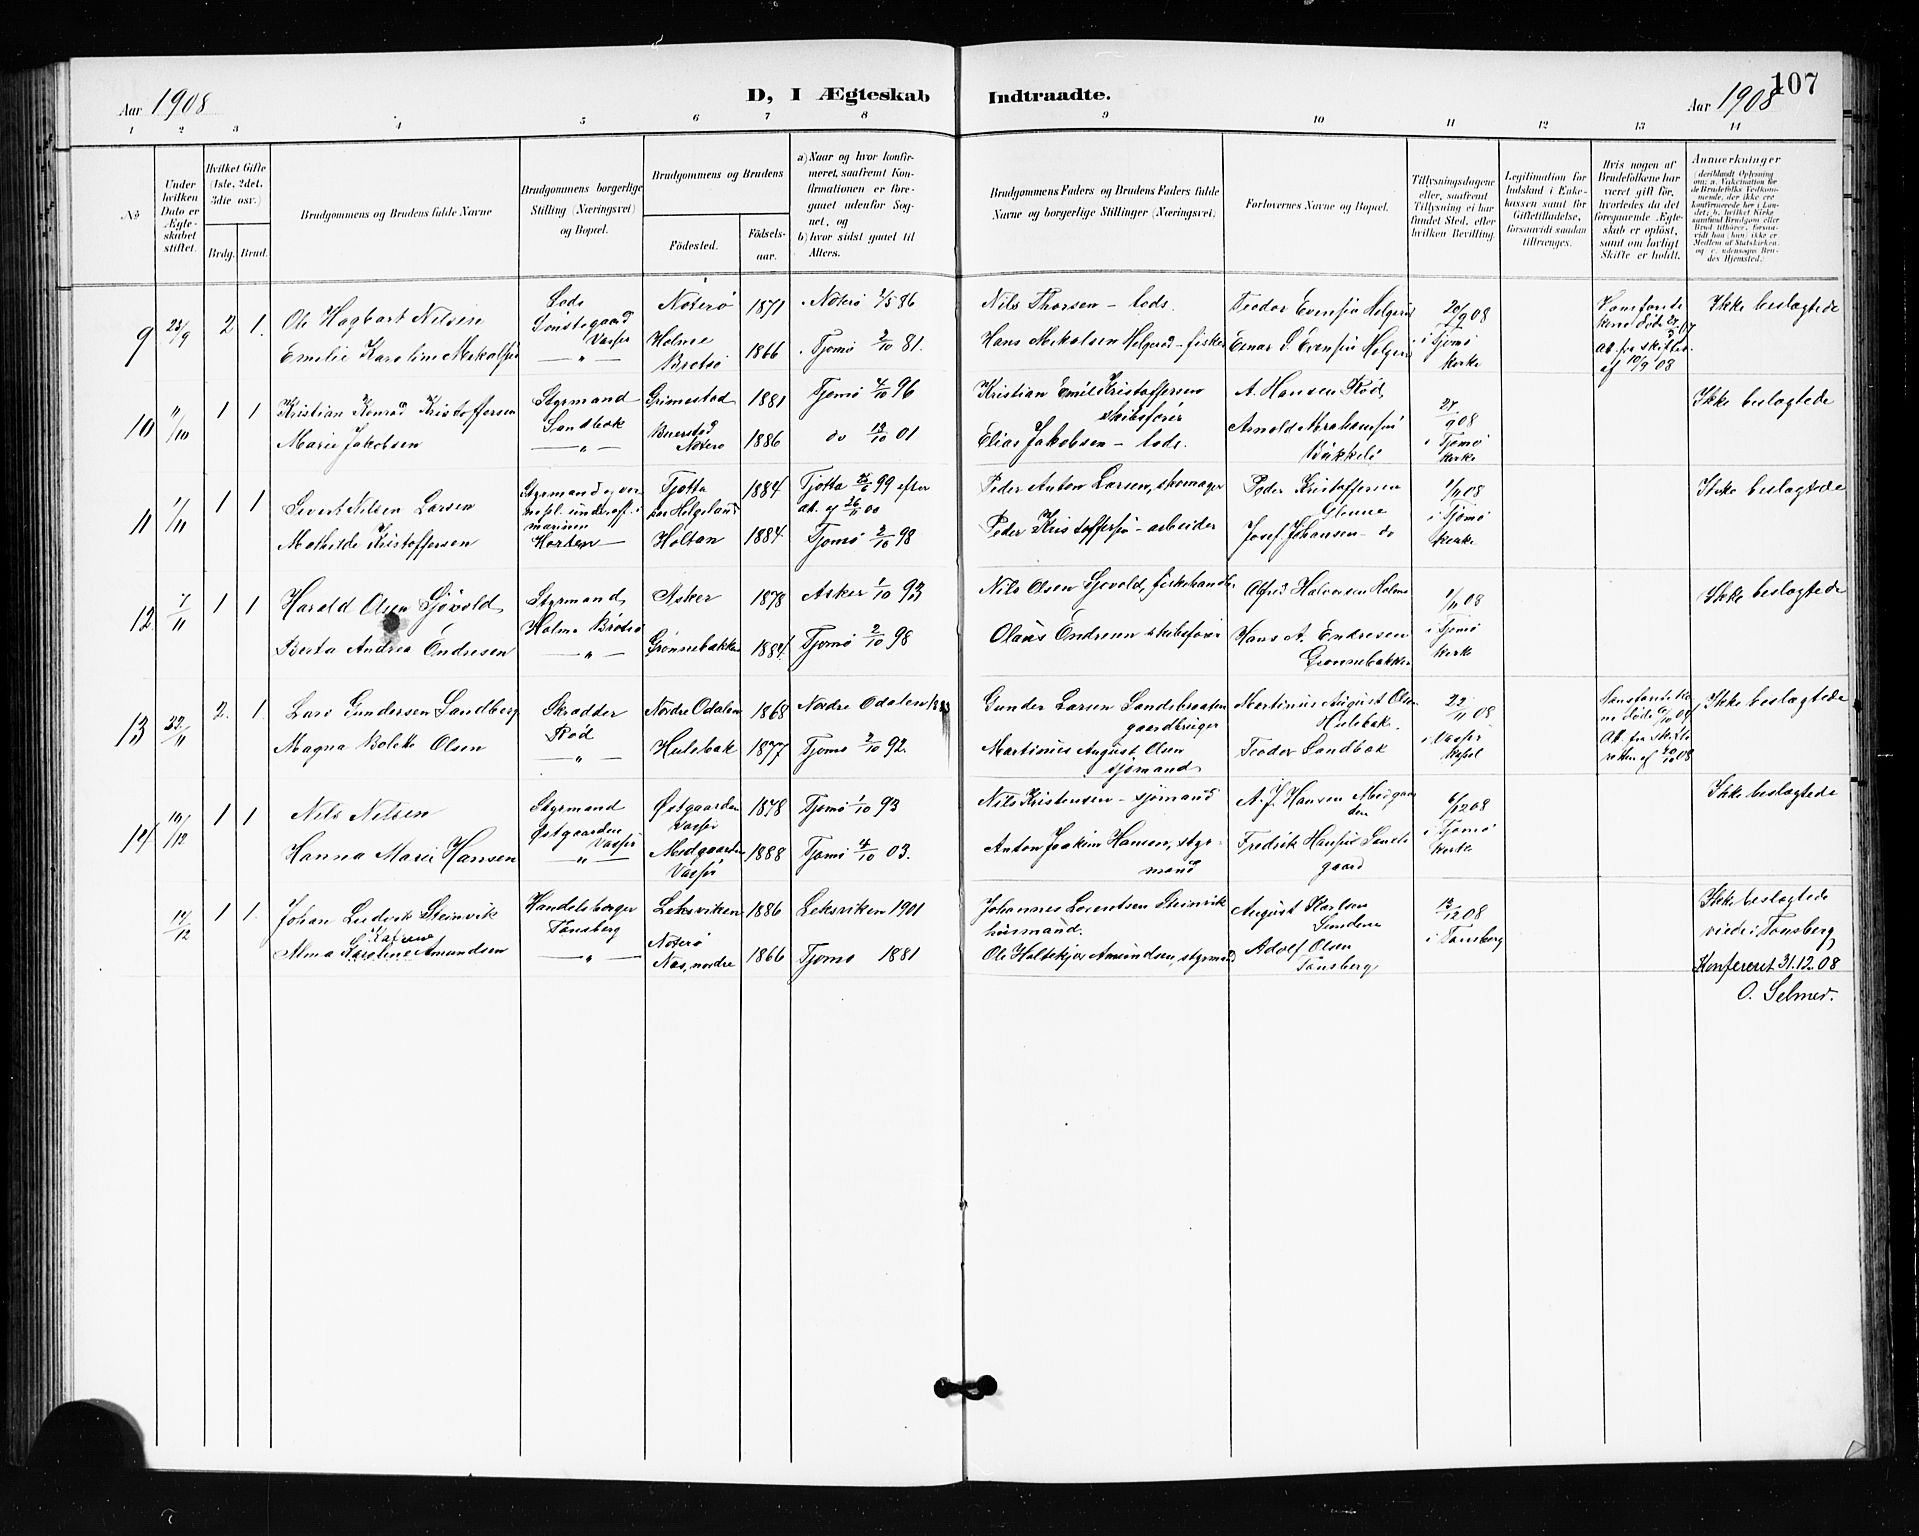 107
Aar 1908
D, I Ægteskab Indtraadte.
Aar 1908
1 2 3 4 5 6 7 8 9 10 11 12 13 14
No
Under hvilken Dato er Ægteskabet stiftet.
Hvilket Gifte (1ste, 2det, 3die osv.)
Brdg. Brud.
Brudgommens og Brudens fulde Navne
Brudgommens borgerlige Stilling (Næringsvei) og Bopæl.
Brudgommens og Brudens
Fødested.
Fødselsaar.
a) Naar og hvor konfirmeret, saafremt Konfirmationen er foregaaet udenfor Sognet, og
b) hvor sidst gaaet til Alters.
Brudgommens Faders og Brudens Faders fulde Navne og borgerlige Stillinger (Næringsvei)
Forlovernes Navne og Bopæl.
Tillysningsdagene eller, saafremt Tillysning ei har fundet Sted, efter hvilken Bevilling.
Legitimation for Indskud i Enkekassen samt for Giftetilladelse, forsaavidt saadan tiltrænges.
Hvis nogen af Brudefolkene har været gift før, hvorledes da det foregaaende Ægteskab er opløst, samt om lovligt Skifte er holdt.
Anmerkninger
9 23/9 2 1.
Ole Hagbart Nilsen
Emilie Karoline Mikalsen
Lods
Sønstegaard
Vasser
— " —
Nøterø 1871
Holme
Brøtsø 1866
Nøterø 2/5 86
Tjømø 2/10 81.
Nils Thorsen — lods.
Hans Mikalsen Helgerød — fisker
Teodor Evensen Helgerød
Einar S. Evensen Helgerød
20/9 08
i Tjømø
kirke
Ikke beslægtede
10 11/10 1 1
Kristian Konrad Kristoffersen
Marie Jakobsen
Styrmand
Sandbæk
— " —
Grimestad 1881
Nøterø 1886
Tjømø 4/10 96
do 13/10 01
Kristian Emil Kristoffersen
skibsfører
Elias Jakobsen — lods.
A. Hansen Rød
Arnold Abrahamsen
27/9 08
i Tjømø
kirke
Ikke beslægtede
11 1/11 1 1
Sivert Nilsen Larsen
Mathilde Kristoffersen
Styrmand og
marinen
Horten —
Tjøtta
Helgeland 1884
Holtan 1884.
Tjøtta 25/6 99 efter
at. af 26/11 00
Tjømø 2/10 98
Peder Anton Larsen, skomager
Peder Kristoffersen — arbeider
Peder Kristoffersen
Josef Johansen — do
1/11 08
i Tjømø
kirke
Ikke beslægtede
12 7/11 1 1
Harald Olsen Sjøvold
Berta Andrea Endresen
Styrmand
Holme Brøtsø
— " —
Asker 1878
Grønnebakke 1884.
Asker 1/10 93
Tjømø 2/10 98
Nils Olsen Sjøvold, fiskehandler
Olaus Endresen skibsfører
Alfred Halvorsen Holme
Hans A. Endresen
Grønnebakken
1/11 08
i Tjømø
kirke
Ikke beslægtede
13 22/11 2. 1.
Lars Gundersen Sandberg
Magna Bolette Olsen
Skrædder
Rød
— " —
Nordre Odalen 1868
Hulebak 1877
Nordre Odalen 1883
Tjømø 2/10 92.
Gunder Larsen Sandebraaten
gaardbruger
Martinius August Olsen
sjømand
Martinius August Olsen
Hulebak.
Teodor Sandbæk
22/11 08
i Vasser
kapel
Ikke beslægtede
14 10/12 1 1
Nils Nilsen
Hanna Marie Hansen
Styrmand
Østgaarden
Vasser
— " —
Østgaarden
Vasser 1878
Midgaarden
Vasser 1888
Tjømø 1/10 93
Tjømø 4/10 03.
Nils Kristensen — sjømand
Anton Joakim Hansen, styrmand
A. J. Hansen Midgaarden
Fredrik Hansen
6/12 08
i Tjømø
kirke
Ikke beslægtede
12/12 1 1.
Johan Ludvik Steinvik
Katrine
Alma Karoline Amundsen
Handelsborger
Tønsberg
— " —
Leksviken 1886
Nøterø
Nes, nordre 1866
Leksviken 1901
Tjømø 1881
Johannes Lorentsen Steinvik
husmand.
Ole Holtekjær Amundsen, styrmand
August Karlsen
Adolf Olsen
Tønsberg
13/12 08
i Tønsberg
Ikke beslægtede
viede i Tønsberg
Konfereret 31.12.08
O. Selmer.